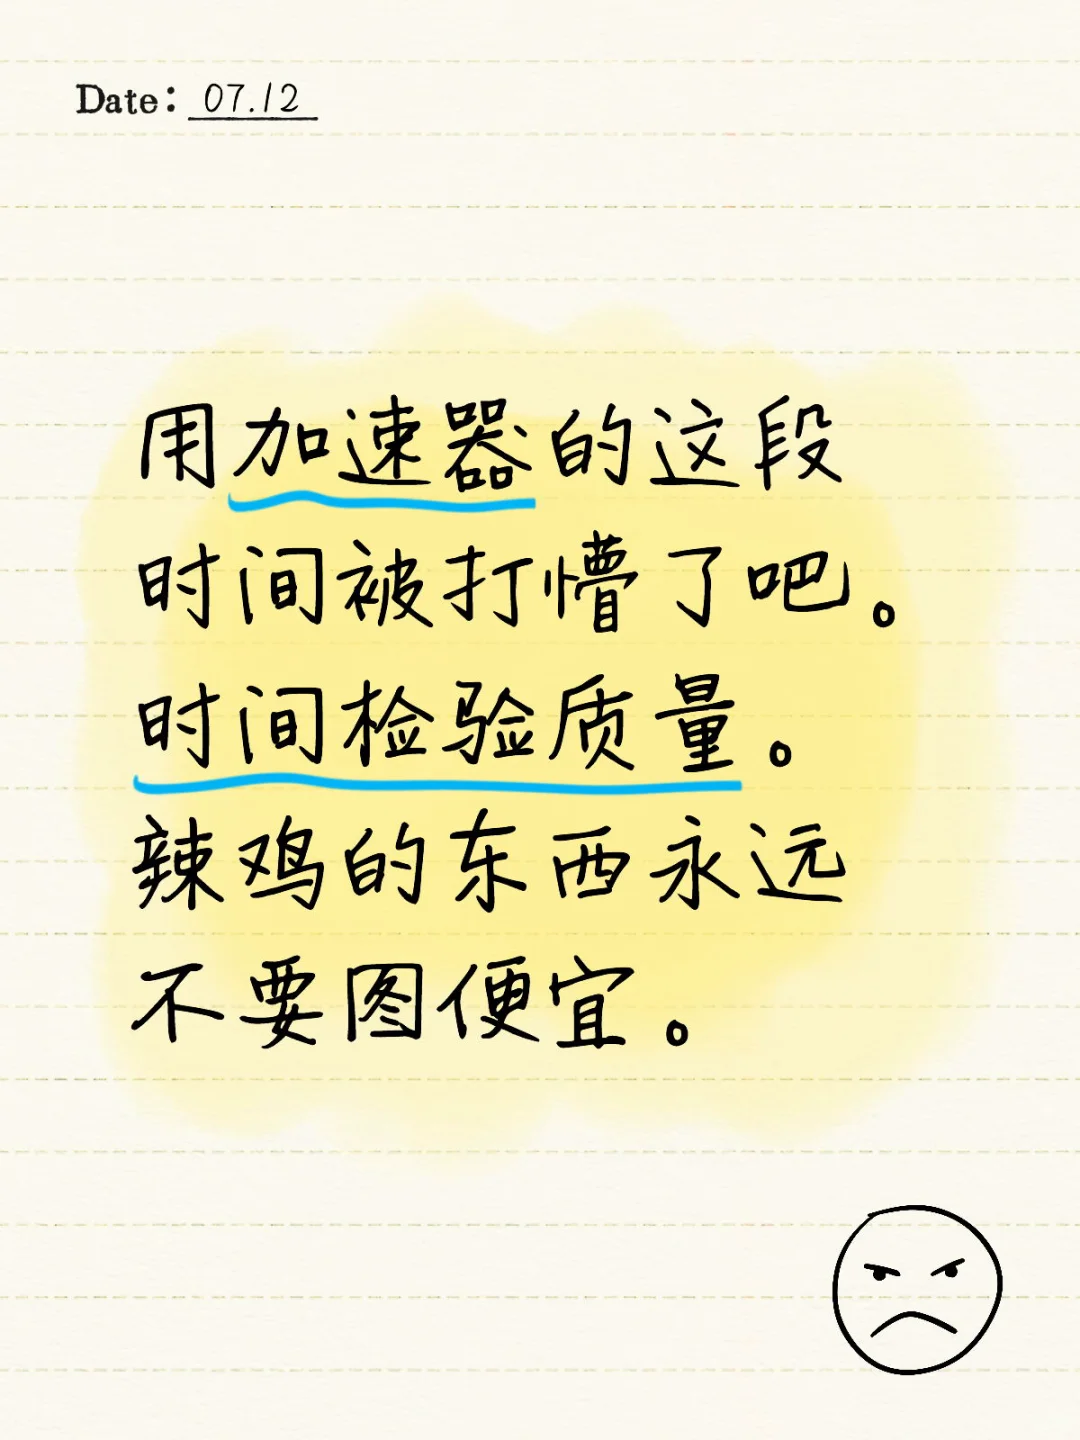 Date: 07.12
用加速器的这段
时间被打懵了吧。
时间检验质量。
辣鸡的东西永远
不要图便宜。